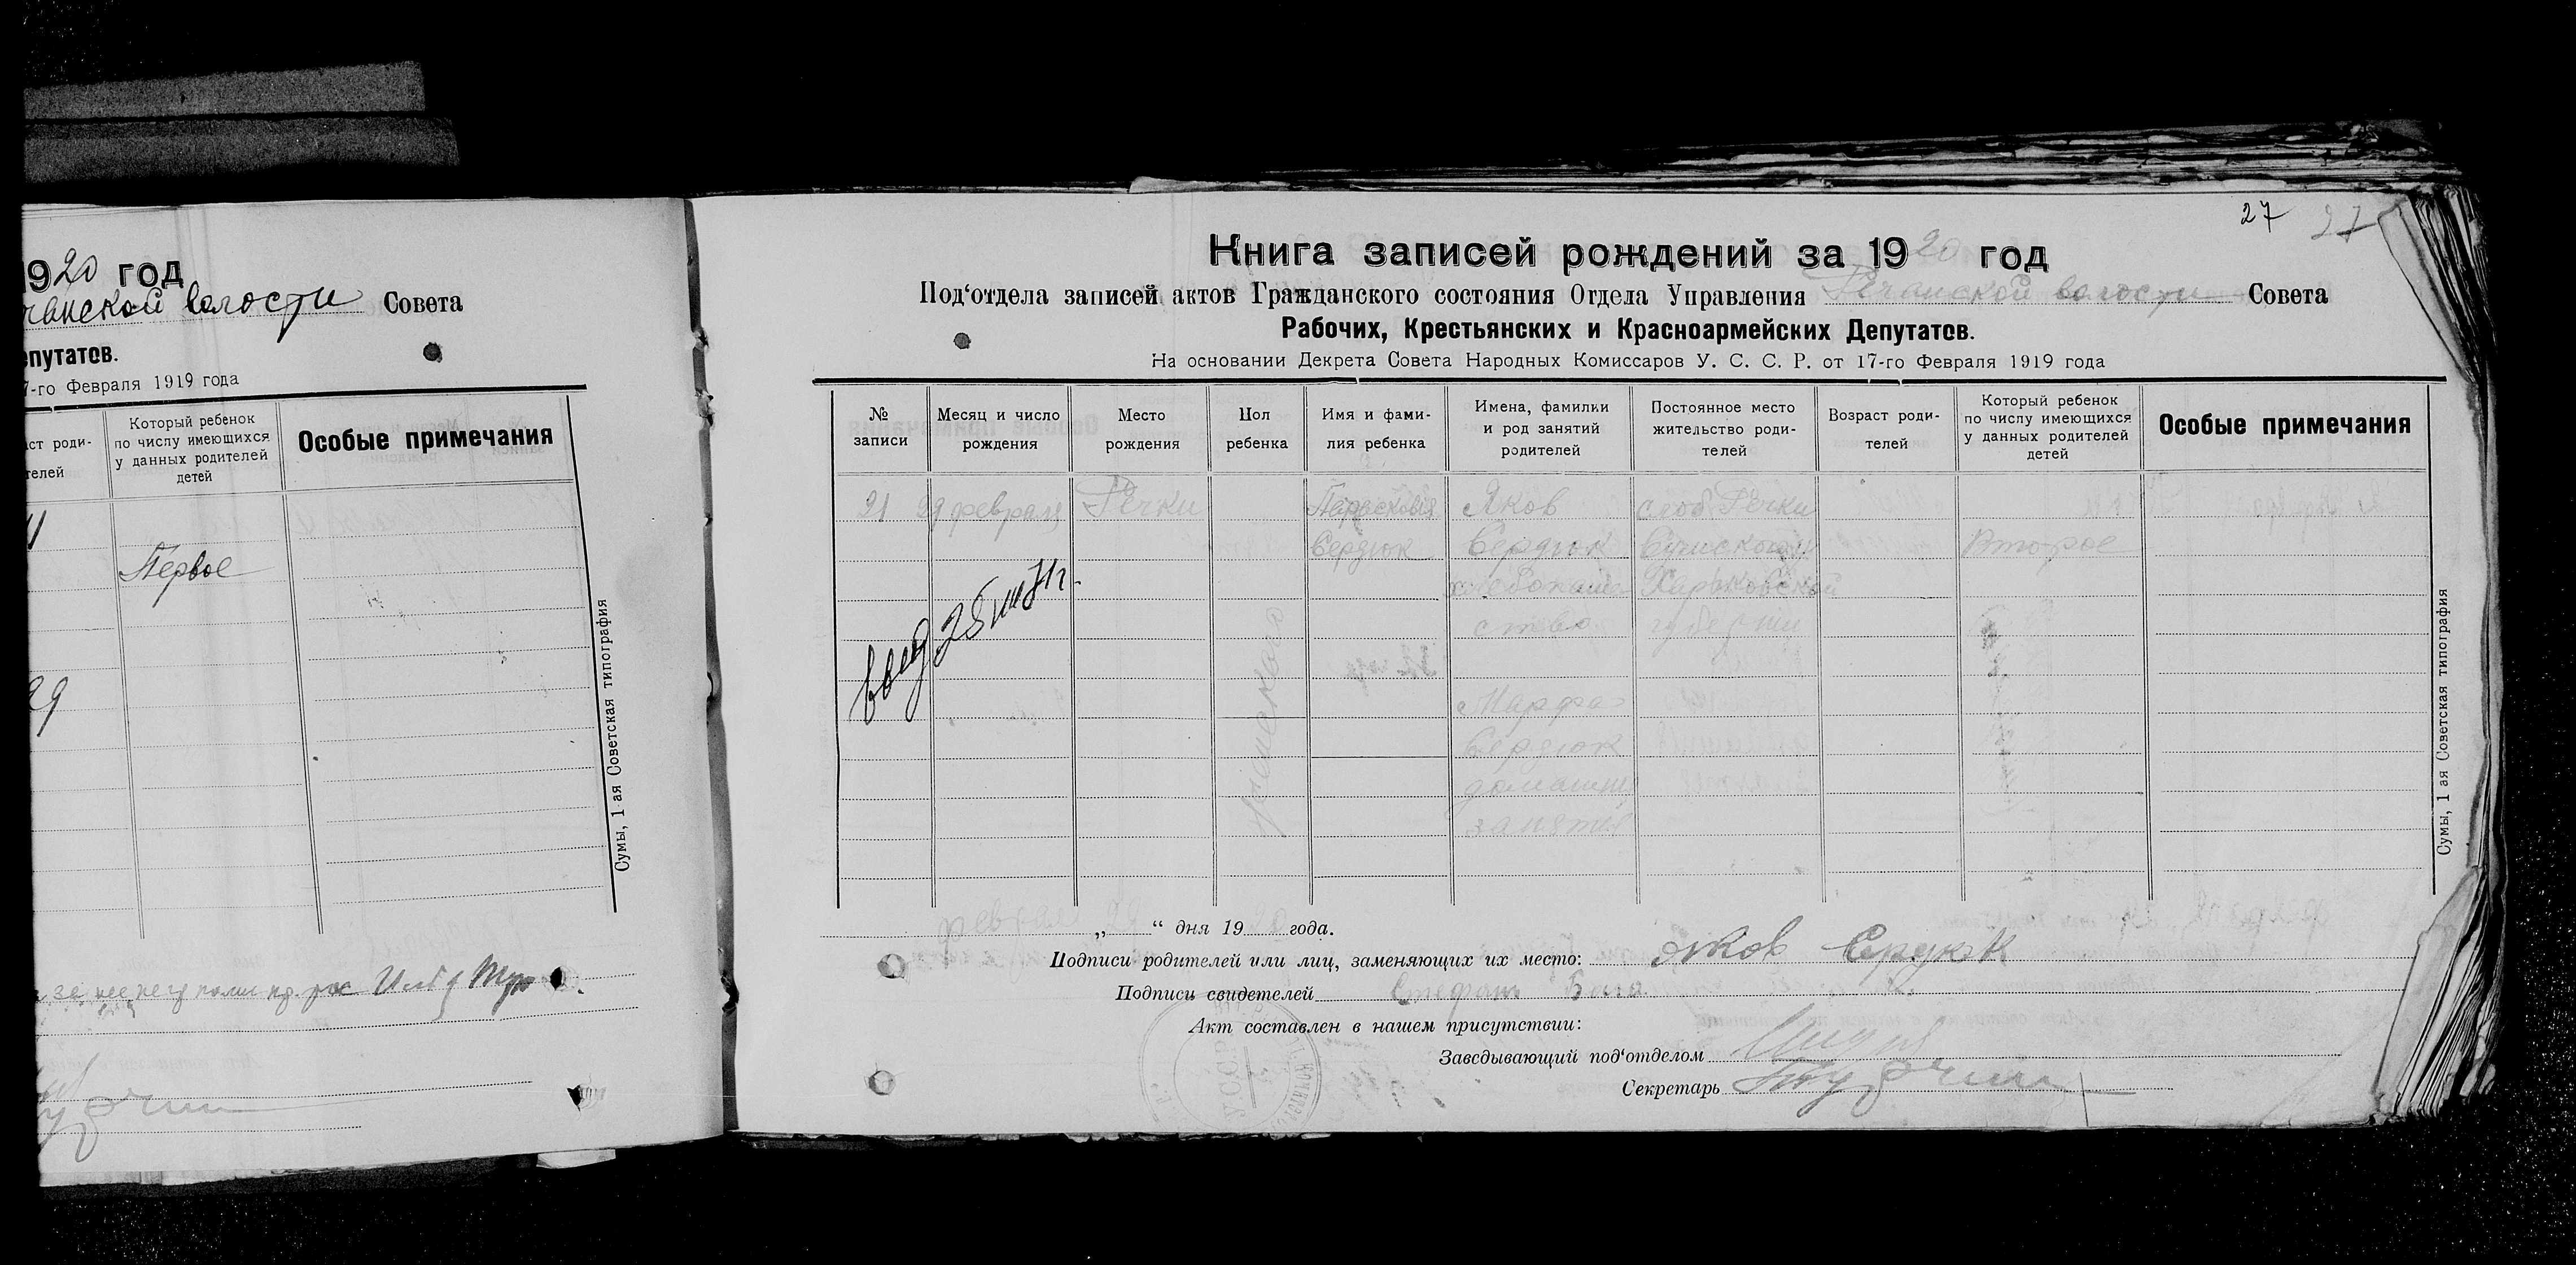 1920 год
чанской волости Совета
епутатов.
7-го Февраля 1919 года
ст роди-
телей
Который ребенок
по числу имеющихся
у данных родителей
детей
Особые примечания
Первое
29
Сумы, 1 ая Советская типография
27 27
Книга записей рождений за 1920 год
Под‘отдела записей актов Гражданского состояния Отдела Управления Речанской волости Совета
Рабочих, Крестьянских и Красноармейских Депутатов.
На основании Декрета Совета Народных Комиссаров У. С. С. Р. от 17-го Февраля 1919 года
№
записи
Месяц и число
рождения
Место
рождения
Пол
ребенка
Имя и фами-
лия ребенка
Имена, фамилии
и род занятий
родителей
Постоянное место
жительство роди-
телей
Возраст роди-
телей
Который ребенок
по числу имеющихся
у данных родителей
детей
Особые примечания
21 29 февраля Речки Парасковия Яков слоб Речки
Сердюк Сердюк Сумского у Второе
хлебопаше Харьковской
ство губернии
женского
Марфа
Сердюк
домашни
занятия
Сумы, 1 ая Советская типография
февраля „29“ дня 1920 года.
Подписи родителей или лиц, заменяющих их место: Яков Сердюк
Подписи свидетелей Стефан
Акт составлен в нашем присутствии:
Заведывающий под‘отделом
Секретарь